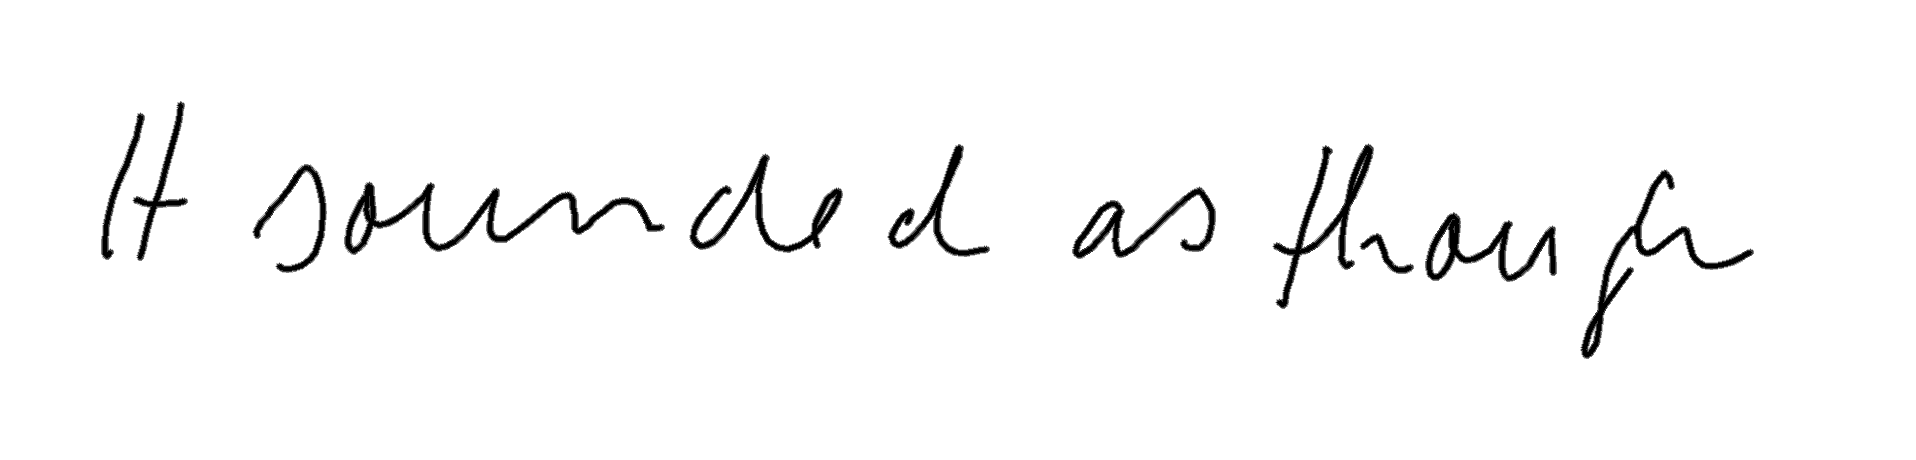 It sounded as though